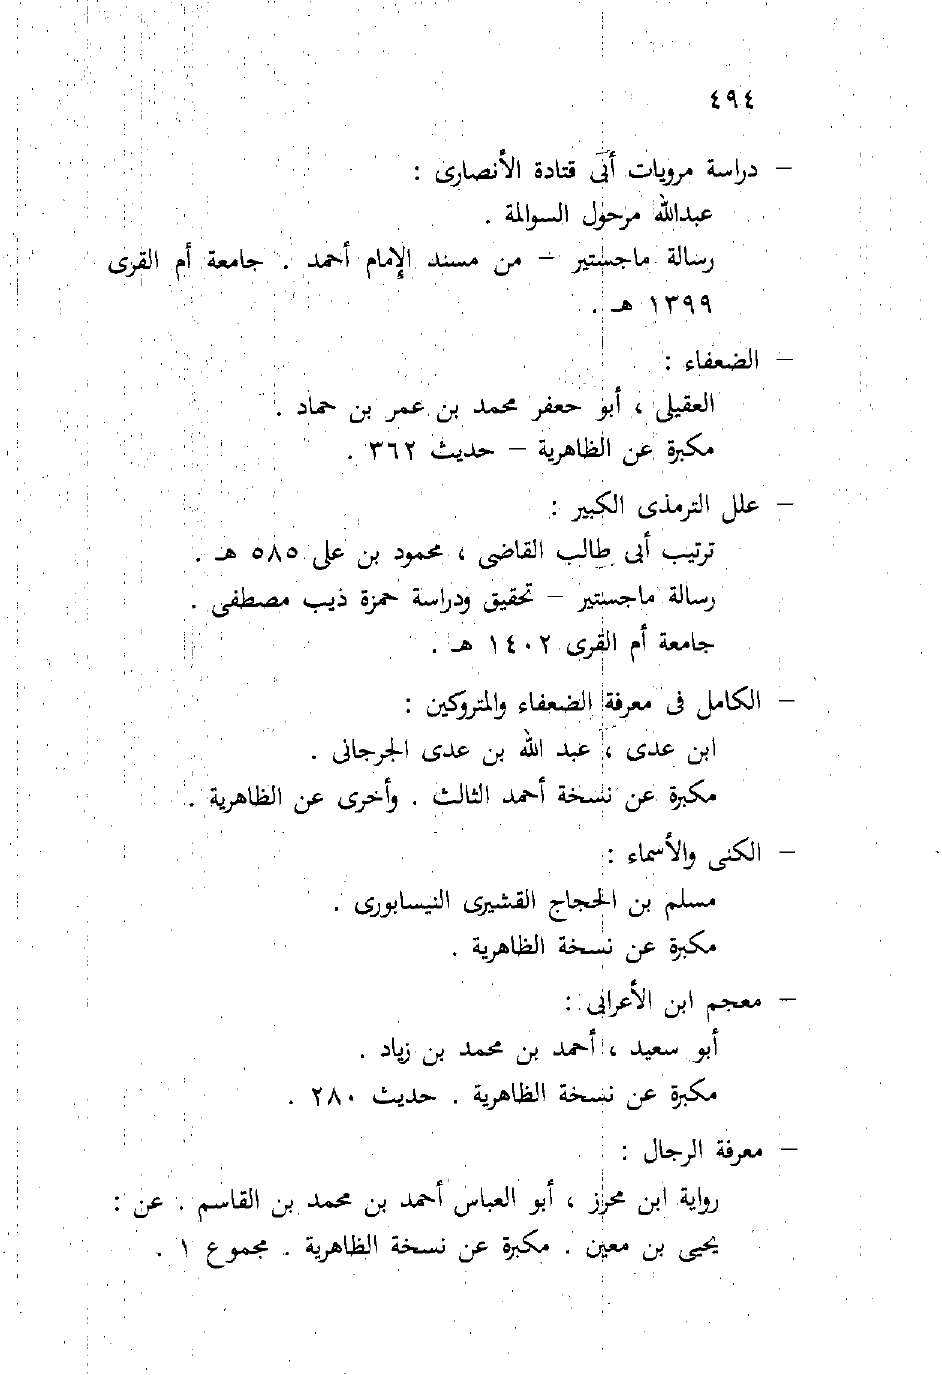 ٤٩٤
– دراسة مرويات أبى قتادة الأنصارى :
عبدالله مرحول السوالمة .
رسالة ماجستير – من مسند الإمام أحمد . جامعة أم القرى
١٣٩٩ هـ .
– الضعفاء :
العقيلى ، أبو حعفر محمد بن عمر بن حماد .
مكبرة عن الظاهرية – حديث ٣٦٢ .
– علل الترمذى الكبير :
ترتيب أبى طالب القاضى ، محمود بن على ٥٨٥ هـ .
رسالة ماجستير – تحقيق ودراسة حمزة ذيب مصطفى .
جامعة أم القرى ١٤٠٢ هـ .
– الكامل فى معرفة الضعفاء والمتروكين :
ابن عدى ، عبد الله بن عدى الجرجانى .
مكبرة عن نسخة أحمد الثالث . وأخرى عن الظاهرية .
– الكنى والأسماء :
مسلم بن الحجاج القشيرى النيسابورى .
مكبرة عن نسخة الظاهرية .
– معجم ابن الأعرابى :
أبو سعيد ، أحمد بن محمد بن زياد .
مكبرة عن نسخة الظاهرية . حديث ٢٨٠ .
– معرفة الرجال :
رواية ابن محرز ، أبو العباس أحمد بن محمد بن القاسم . عن :
يحيى بن معين . مكبرة عن نسخة الظاهرية . مجموع ١ .